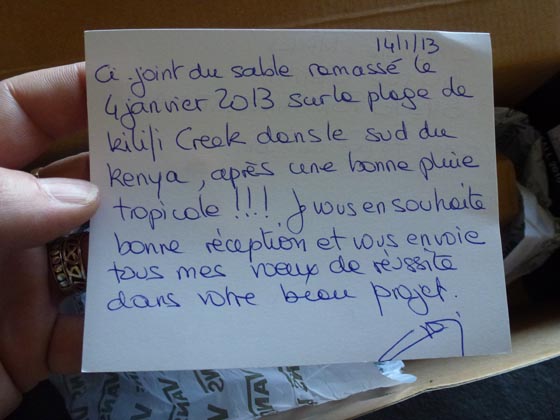 14/1/13
Ci-joint du sable ramassé le
4 janvier 2013 sur la plage de
Kilifi Creek dans le sud du
Kenya, après une bonne pluie
tropicale !!! Je vous en souhaite
bonne réception et vous envoie
tous mes voeux de réussite
dans votre beau projet.
VANS